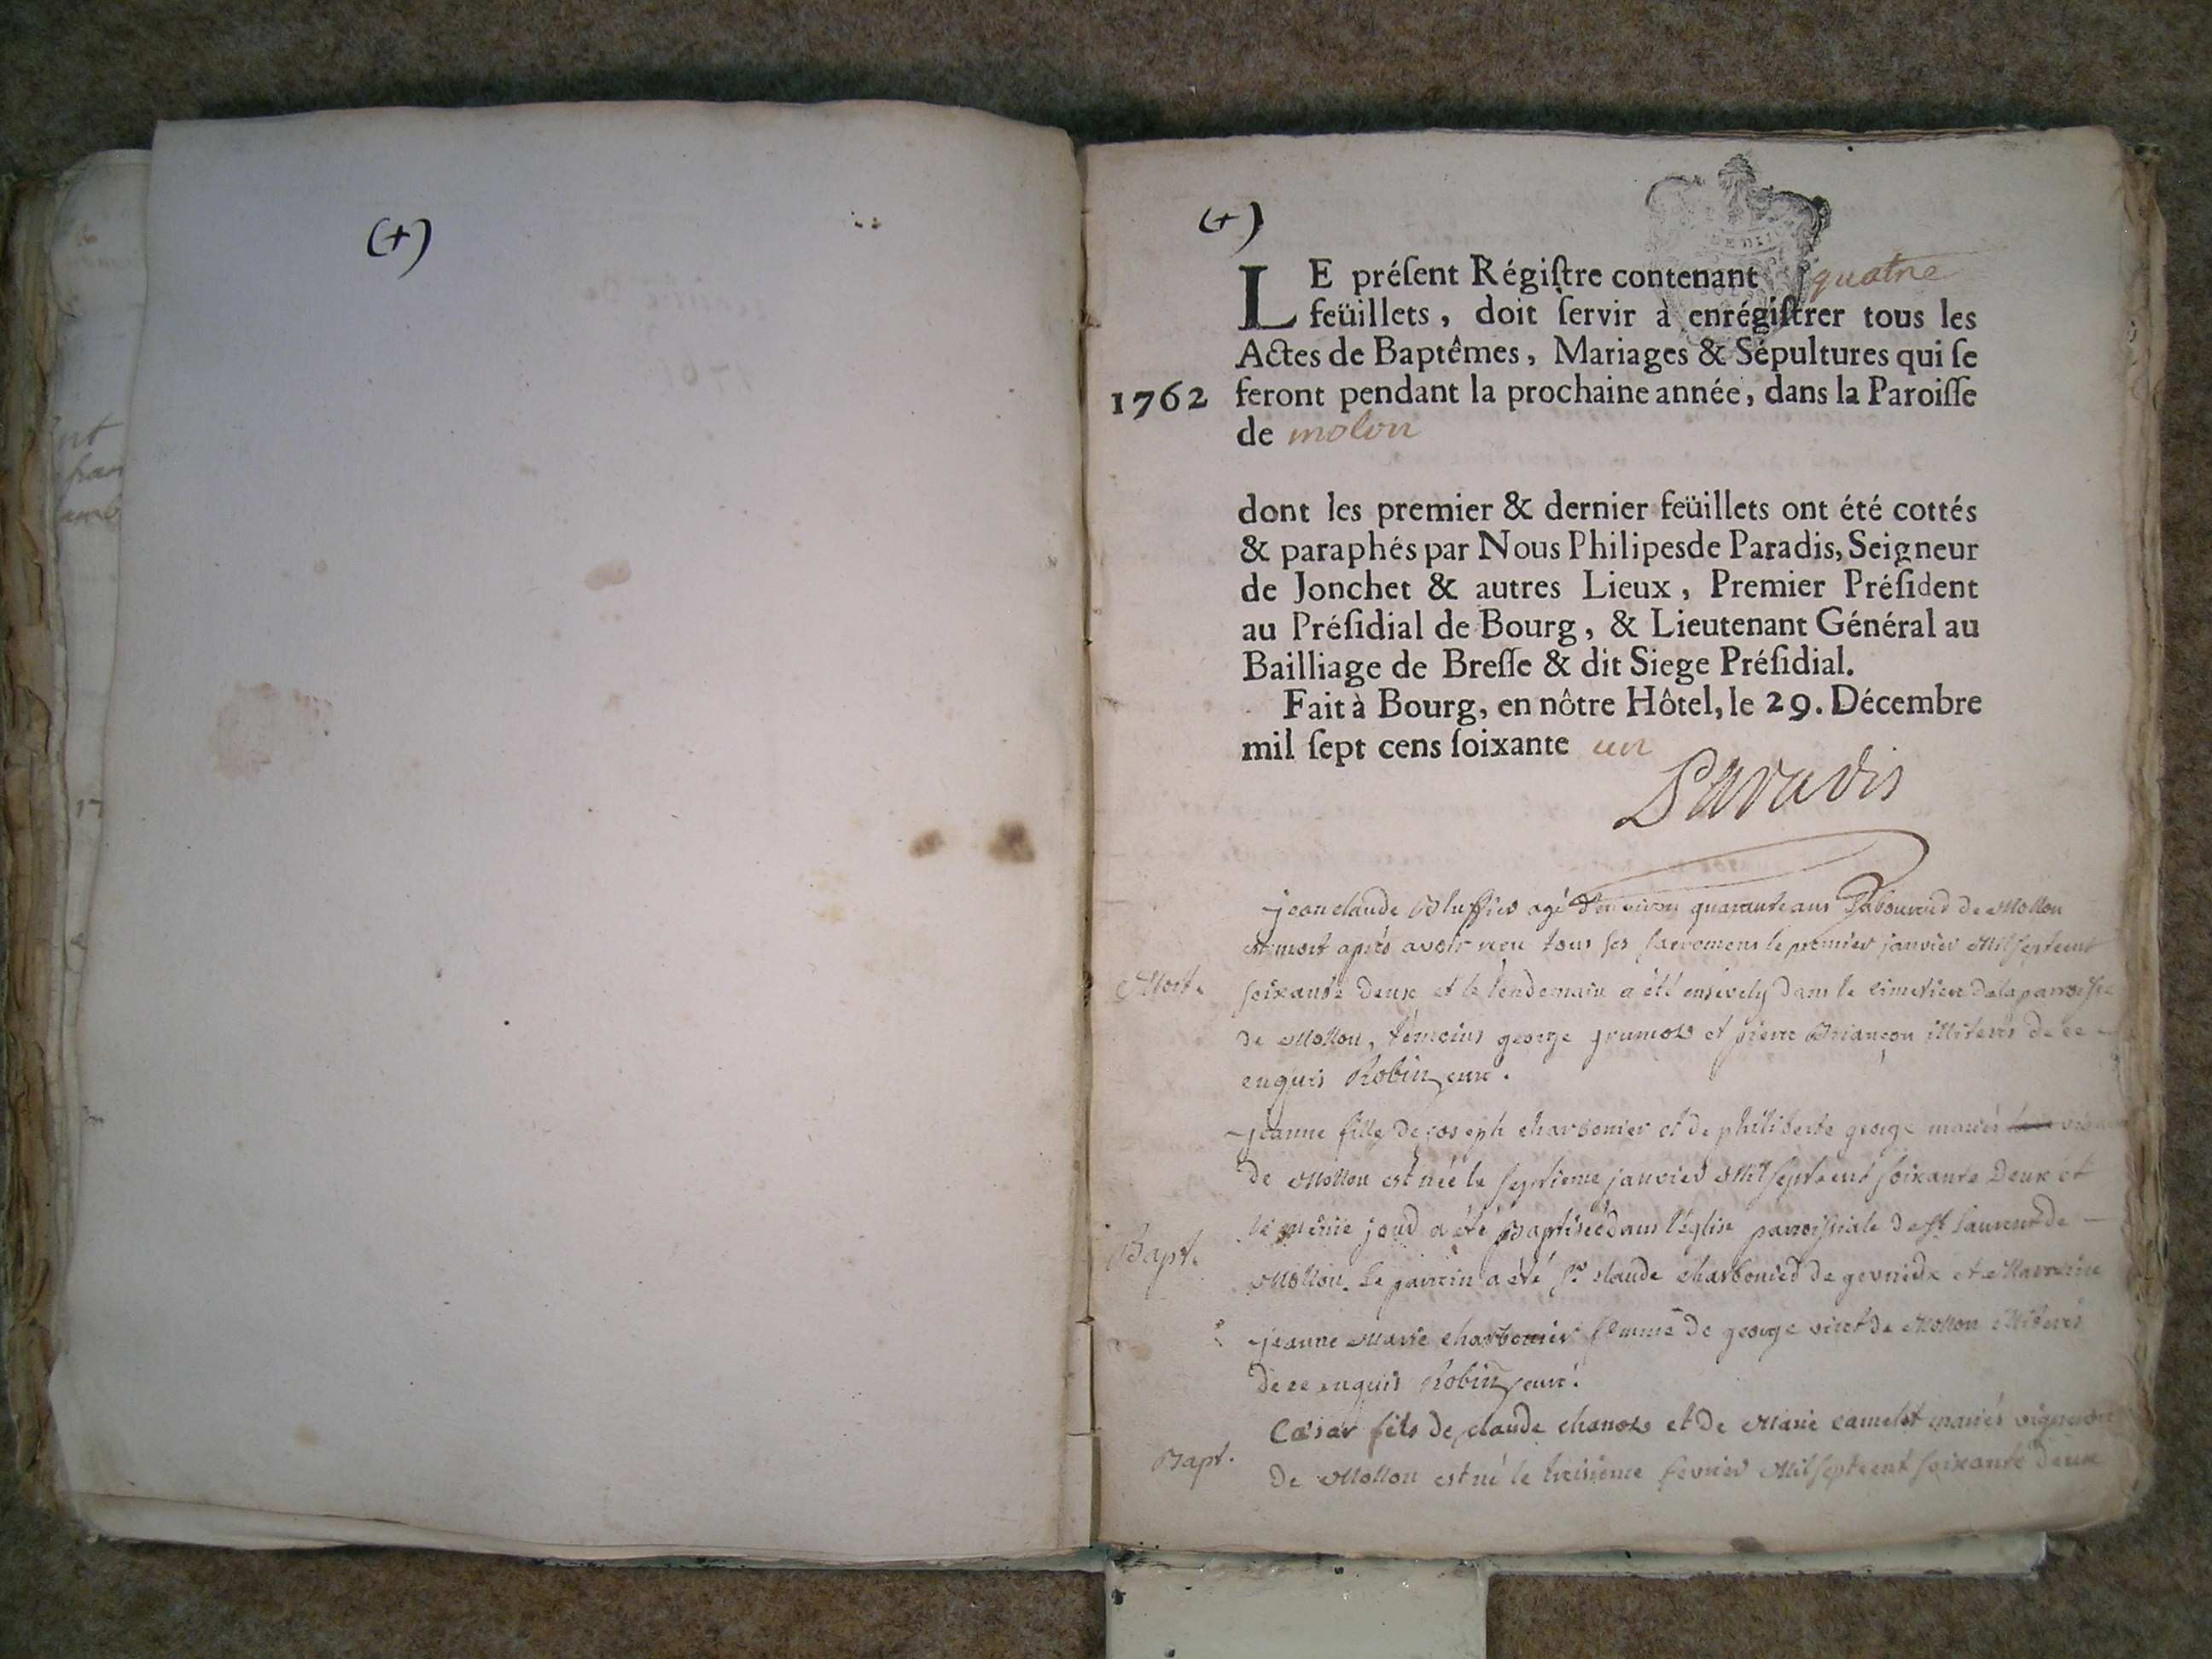 (+)
(+)
LE préſent Régiſtre contenant quatre
feüillets, doit ſervir à enrégiſtrer tous les
Actes de Baptêmes, Mariages & Sépultures qui ſe
1762 feront pendant la prochaine année, dans la Paroiſſe
de molon
dont les premier & dernier feüillets ont été cottés
& paraphés par Nous Philipes de Paradis, Seigneur
de Jonchet & autres Lieux, Premier Préſident
au Préſidial de Bourg, & Lieutenant Général au
Bailliage de Breſſe & dit Siege Préſidial.
Fait à Bourg, en nôtre Hôtel, le 29. Décembre
mil ſept cens ſoixante un
Paradis
jean claude agé d'environ quarante ans laboureur de Mollon
est mort après avoir reçu tous ses sacremens le premier janvier Mil sept cent
Mort. soixante deux et le lendemain a été ensevely dans le cimetiere de la parroisse
de Mollon, témoins george et pierre Briançon illiterés de ce
enquis Robin curé.
jeanne fille de joseph charbonier et de philiberte george mariés
de Mollon est née le septieme janvier Mil sept cent soixante deux et
Bapt. le même jour a été Baptisée dans l'église parroissiale de St laurent de
Mollon. Le parrin a été Sr claude charbonier de gevrieux et Marreine
jeanne Marie charbonier femme de george de Mollon illiterés
de ce enquis Robin curé.
Cæsar fils de claude chanot et de Marie camelot mariés vigneron
Bapt. de Mollon est né le troisieme fevrier Mil sept cent soixante deux